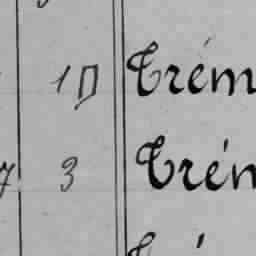 10 Trém
7 3 Trém